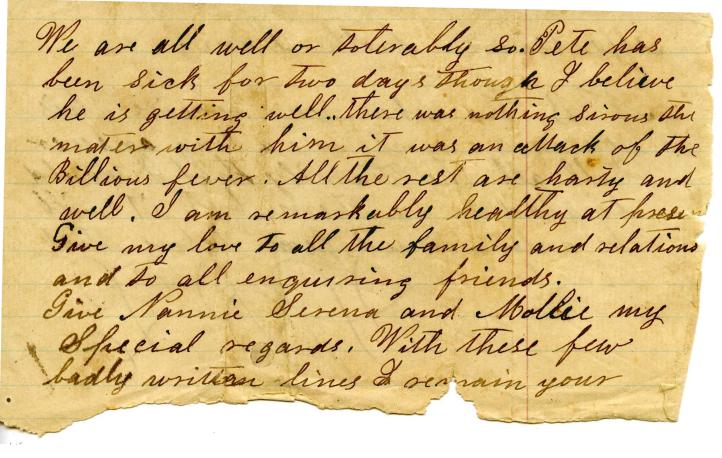 We are all well or tolerably so. Pete has
been sick for two days though I believe
he is getting well.. there was nothing sirous the
mater with him it was an attack of the
Billious fever. All the rest are harty and
well. I am remarkably healthy at presen
Give my love to all the family and relations
and to all enquiring friends.
Give Nannie Serena and Mollie my
Special regards. With these few
badly written lines I remain your